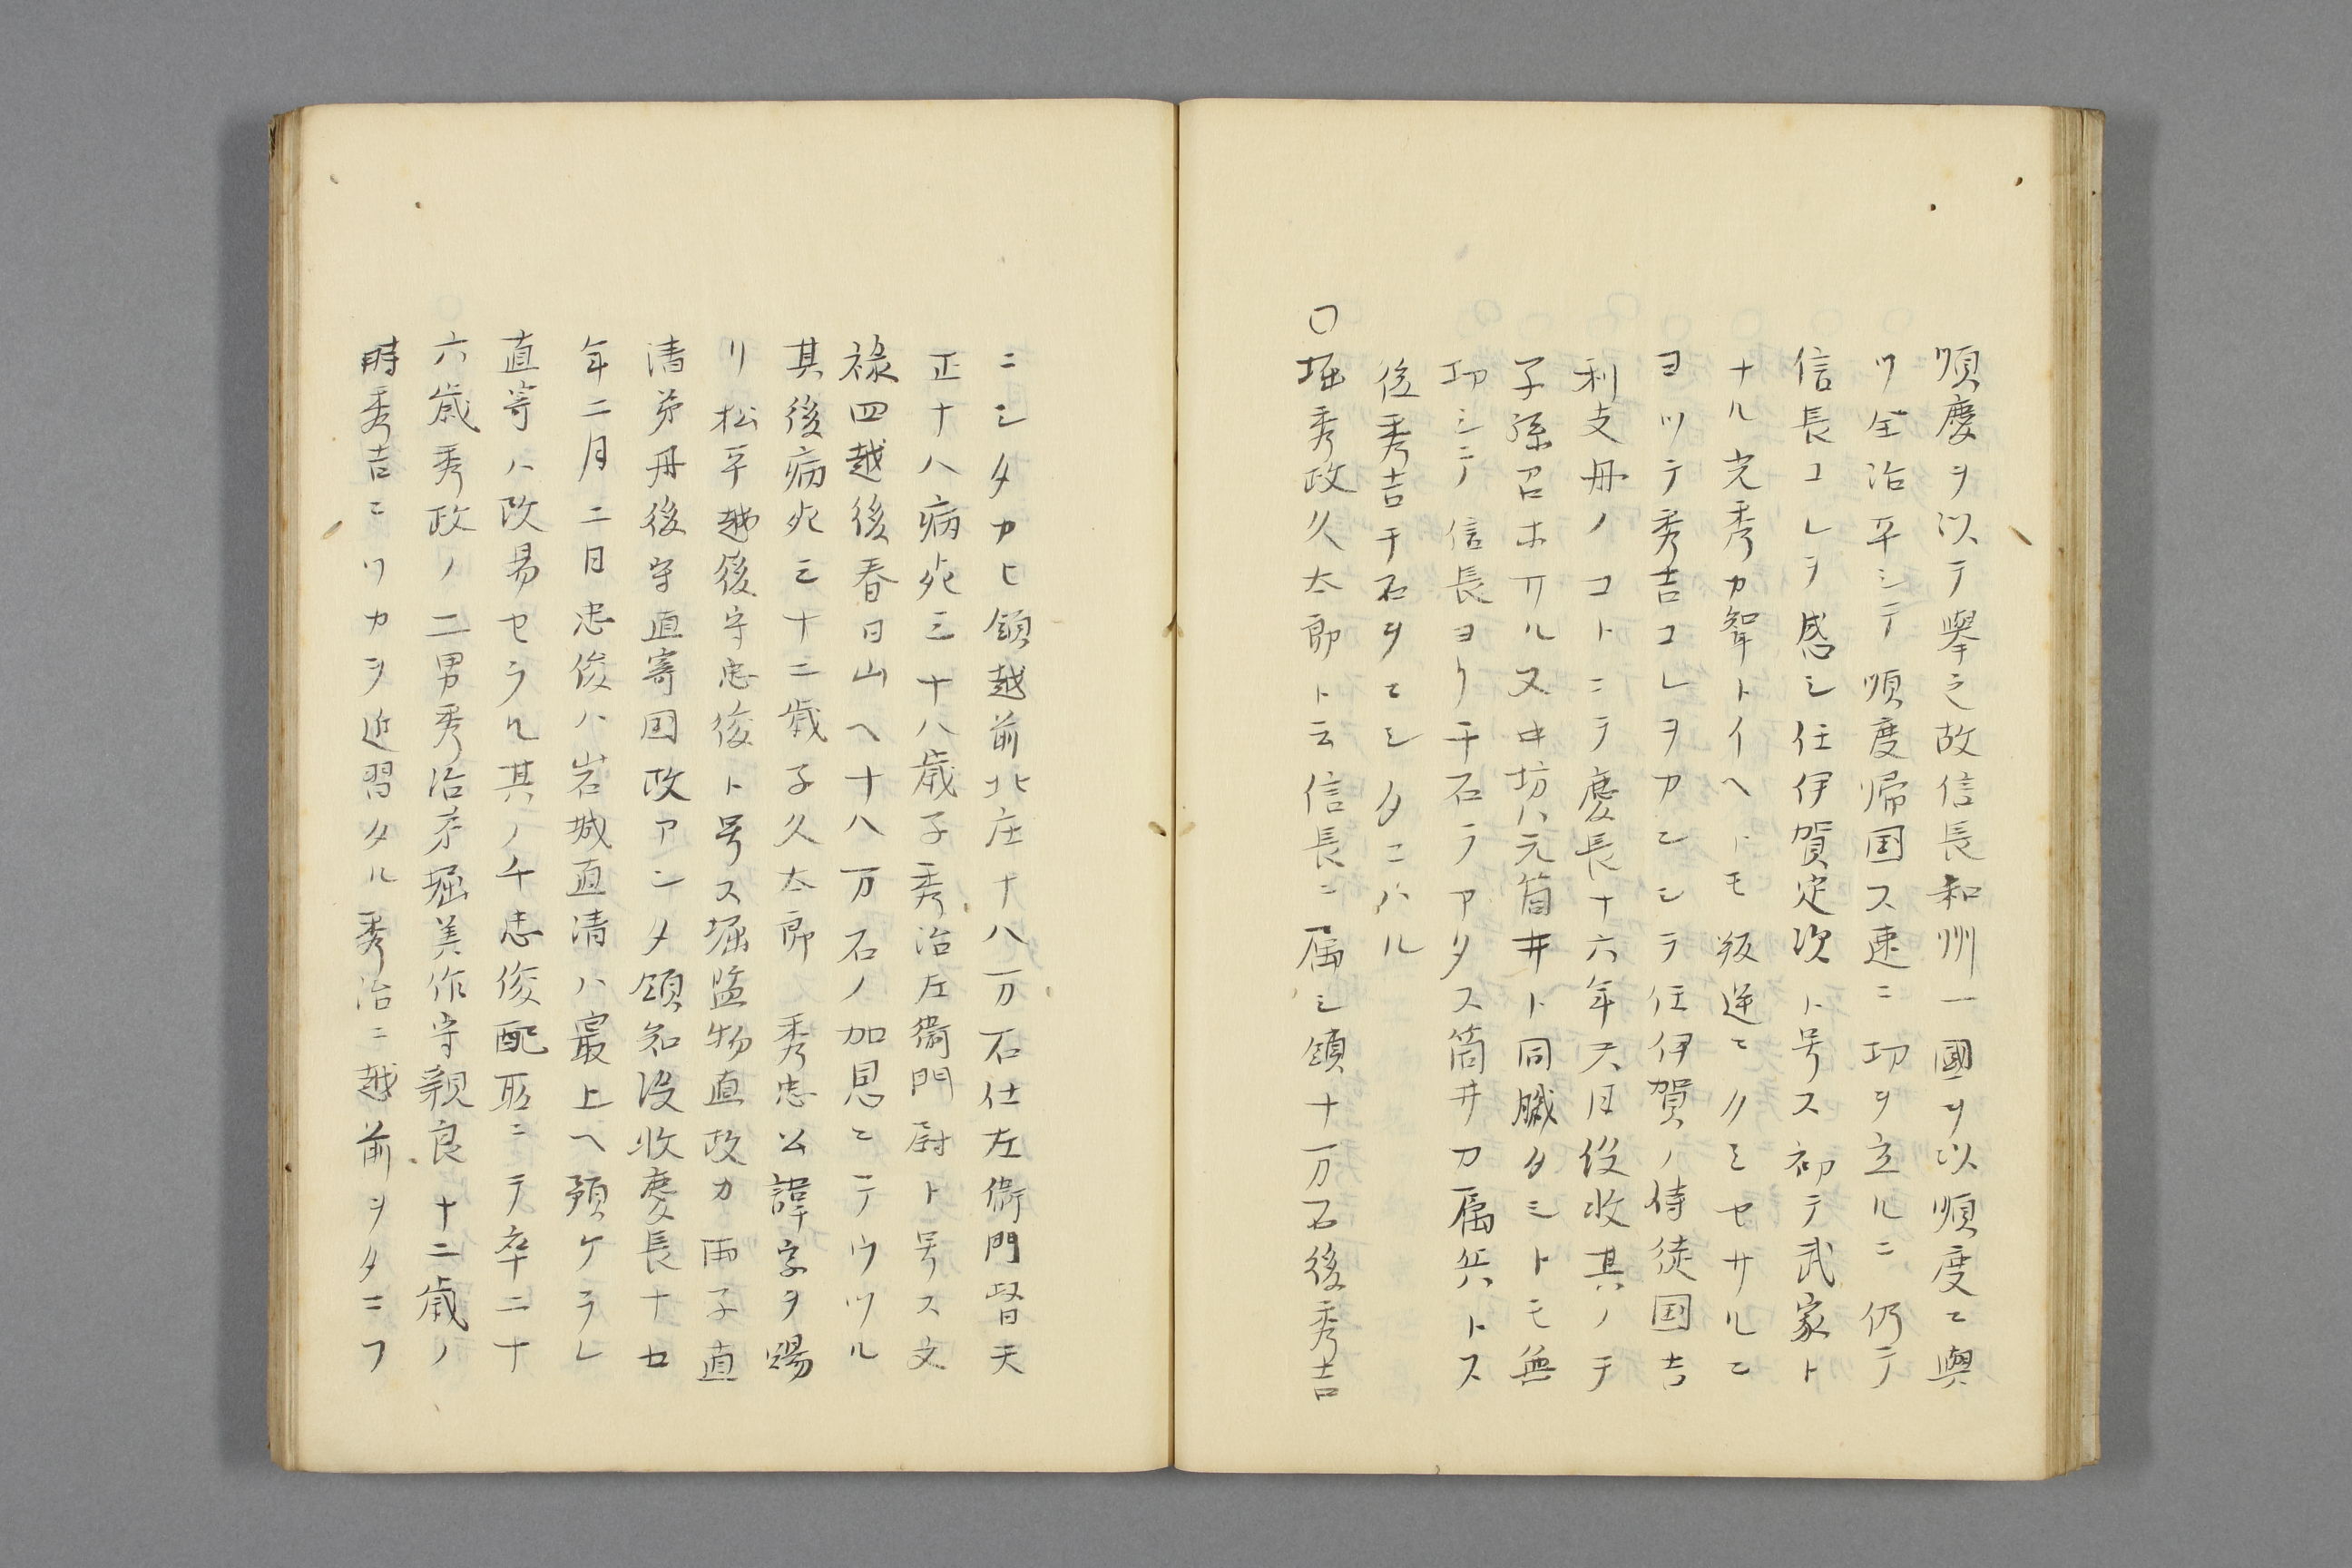 順慶ヲ以テ擧之故信長和州一國ヲ以順慶ニ與
ワ全治平シテ順慶帰国ス速ニ功ヲ立ルニ仍テ
信長コレヲ感シ任伊賀定次ト号ス初テ武家ト
ナル光秀カ聟トイヘトモ叛逆ニクミセサルニ
ヨツテ秀吉コレヲアニシテ任伊賀ノ侍従国吉
利支丹ノコトニテ慶長十六年六月役收其ノテ
子孫召ホ丌ル又中坊ハ元箇井ト同臓タミトモ無
功シニテ信長ヨリ千石ラアタス筒井カ属兵トス
後秀吉千石ヲニシタニハル
〇堀秀政久太郎ト云信長ニ属シ領十万石後秀吉
ニシタカヒ領越前北庄十八万石仕左衛門督天
正十八病死三十八歳子秀治左衛門尉ト号ス文
禄四越後春日山ヘ十八万石ノ加恩ニテウツル
其後病死三十二歳子久太郎 秀忠公諱字ヲ賜
リ松平越後守忠俊ト号ス堀監物直政カ両子直
清弟丹後守直寄国政アシタ領知没收慶長十七
年二月二日忠俊ハ岩城直清ハ最上ヘ預ケラレ
直寄ハ改易セラル其ノ千忠俊配所ニテ卒二十
六歳秀政ノ二男秀治弟堀美作守親良十二歳ノ
時秀吉ニワカヲ近習タル秀治ニ越前ヲタニフ